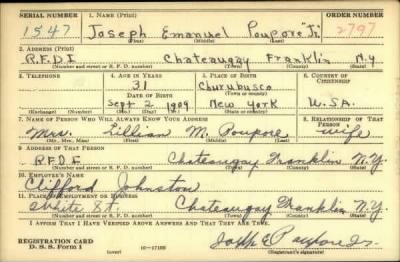 SERIAL NUMBER 1. NAME (Print) ORDER NUMBER
1547 Joseph Emanuel Poupore "Jr." 2797
(First) (Middle) (Last)
2. ADDRESS (Print)
R.F.D.1 Chateaugay Franklin N.Y
(Number and street or R. F. D. number) (Town) (County) (State)
3. TELEPHONE 4. AGE IN YEARS 5. PLACE OF BIRTH 6. COUNTRY OF CITIZENSHIP
31 Churubusco
DATE OF BIRTH (Town or county)
Sept 2 1909 New York U.S.A.
(Exchange) (Number) (Mo.) (Day) (Yr.) (State or country)
7. NAME OF PERSON WHO WILL ALWAYS KNOW YOUR ADDRESS 8. RELATIONSHIP OF THAT PERSON
Mrs. Lillian M. Poupore wife
(Mr., Mrs., Miss) (First) (Middle) (Last)
9. ADDRESS OF THAT PERSON
R.F.D.1 Chateaugay Franklin N.Y.
(Number and street or R. F. D. number) (Town) (County) (State)
10. EMPLOYER'S NAME
Clifford Johnston
11. PLACE OF EMPLOYMENT OR BUSINESS
St. Chateaugay Franklin N.Y.
(Number and street or R. F. D. number) (Town) (County) (State)
I AFFIRM THAT I HAVE VERIFIED ABOVE ANSWERS AND THAT THEY ARE TRUE.
REGISTRATION CARD
D. S. S. Form 1 (over) 16—17105 Joseph E Poupore Jr.
(Registrant's signature)